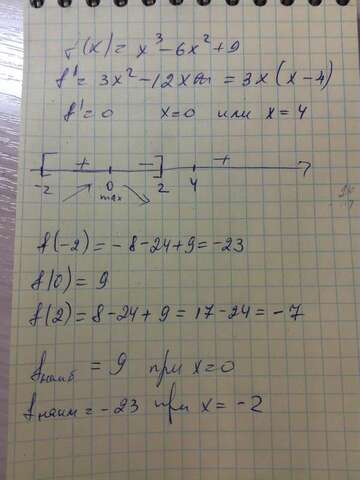 f(x) = x³ - 6x² + 9
f' = 3x² - 12x = 3x(x - 4)
f' = 0 x = 0 или x = 4
+ - +
-2 0 2 4
max
f(-2) = -8 - 24 + 9 = -23
f(0) = 9
f(2) = 8 - 24 + 9 = 17 - 24 = -7
fнаиб = 9 при x = 0
fнаим = -23 при x = -2